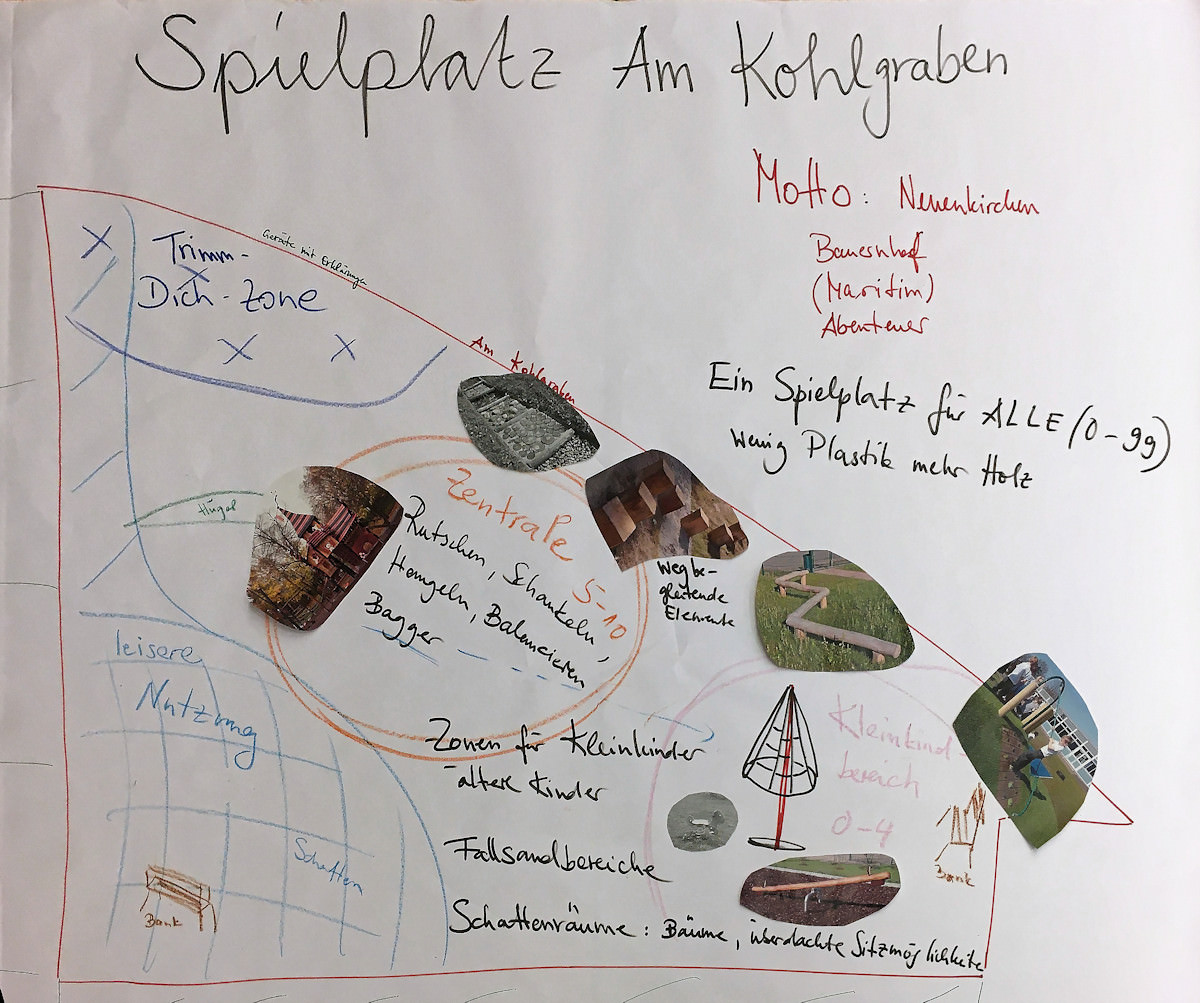 Spielplatz Am Kohlgraben
Motto: Neuenkirchen
Bauernhof
(Maritim)
Abenteuer
Ein Spielplatz für ALLE (0-99)
Wenig Plastik mehr Holz
Geräte mit Erklärungen
Trimm-
Dich-Zone
Am Kohlgraben
Hügel
Zentrale
5-10
Rutschen, Schaukeln,
Hangeln, Balancieren
Bagger
Wegbe-
gleitende
Elemente
leisere
Nutzung
Schatten
Bank
Kleinkind
bereich
0-4
Bank
Zonen für Kleinkinder
ältere Kinder
Fallsandbereiche
Schattenräume: Bäume, überdachte Sitzmöglichkeite